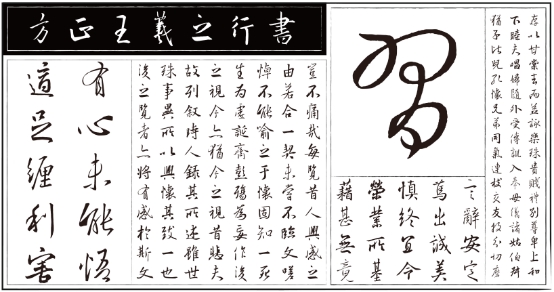 方正王羲之行書
存以甘棠去而益詠樂殊貴賤禮別尊卑上和
下睦夫唱婦隨外受傅訓入奉母儀諸姑伯叔
猶子比兒孔懷兄弟同氣連枝交友投分切磨
習
言辭安定
篤出誠美
慎終宜令
榮業所基
藉甚無竟
豈不痛哉每覽昔人興感之
由若合一契未嘗不臨文嗟
悼不能喻之于懷固知一死
生為虛誕齊彭殤為妄作後
之視今亦猶今之視昔悲夫
故列敘時人錄其所述雖世
殊事異所以興懷其致一也
後之覽者亦將有感於斯文
有心未能悟
適足纏利害